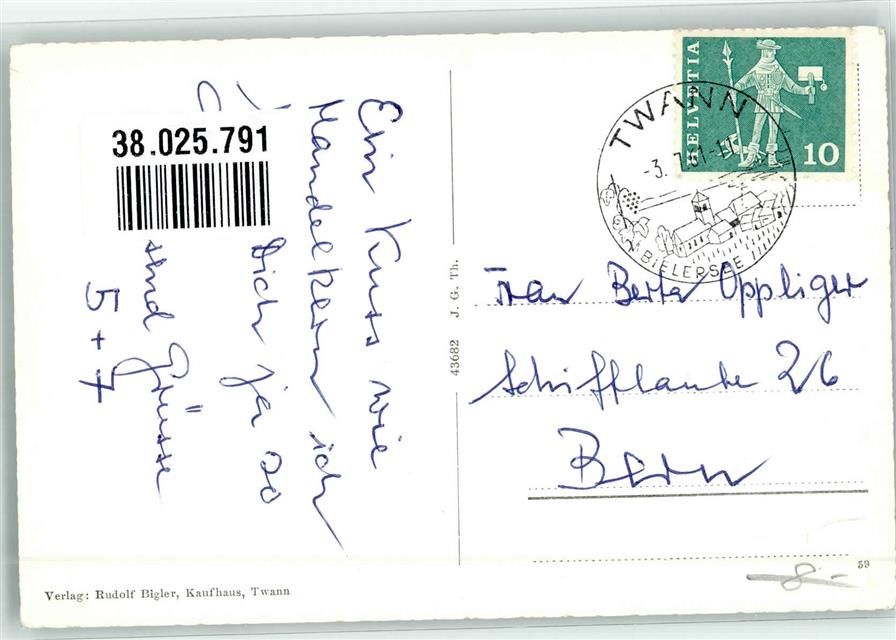 Ein Kuss wie
Mandelkern ich
Dich ja so
sind Grüsse
5 + 7
38.025.791
43682 J. G. Th.
Verlag: Rudolf Bigler, Kaufhaus, Twann
HELVETIA
10
TWANN
-3.7.61-17
BIELERSEE
Frau Berta Oppliger
Schifflaube 26
Bern
59
8.-